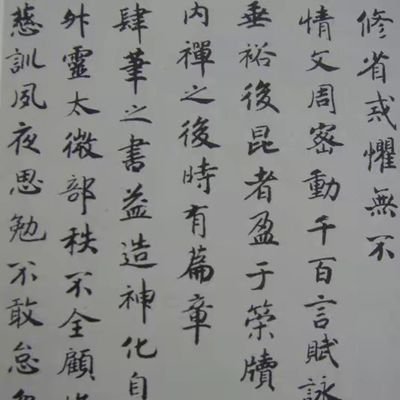 修省戒懼無不
情文周密動千百言賦詠
垂裕後昆者盈于榮牘
内禪之後時有篇章
肆筆之書益造神化自
外靈太微部秩不全顧
慈訓夙夜思勉不敢怠